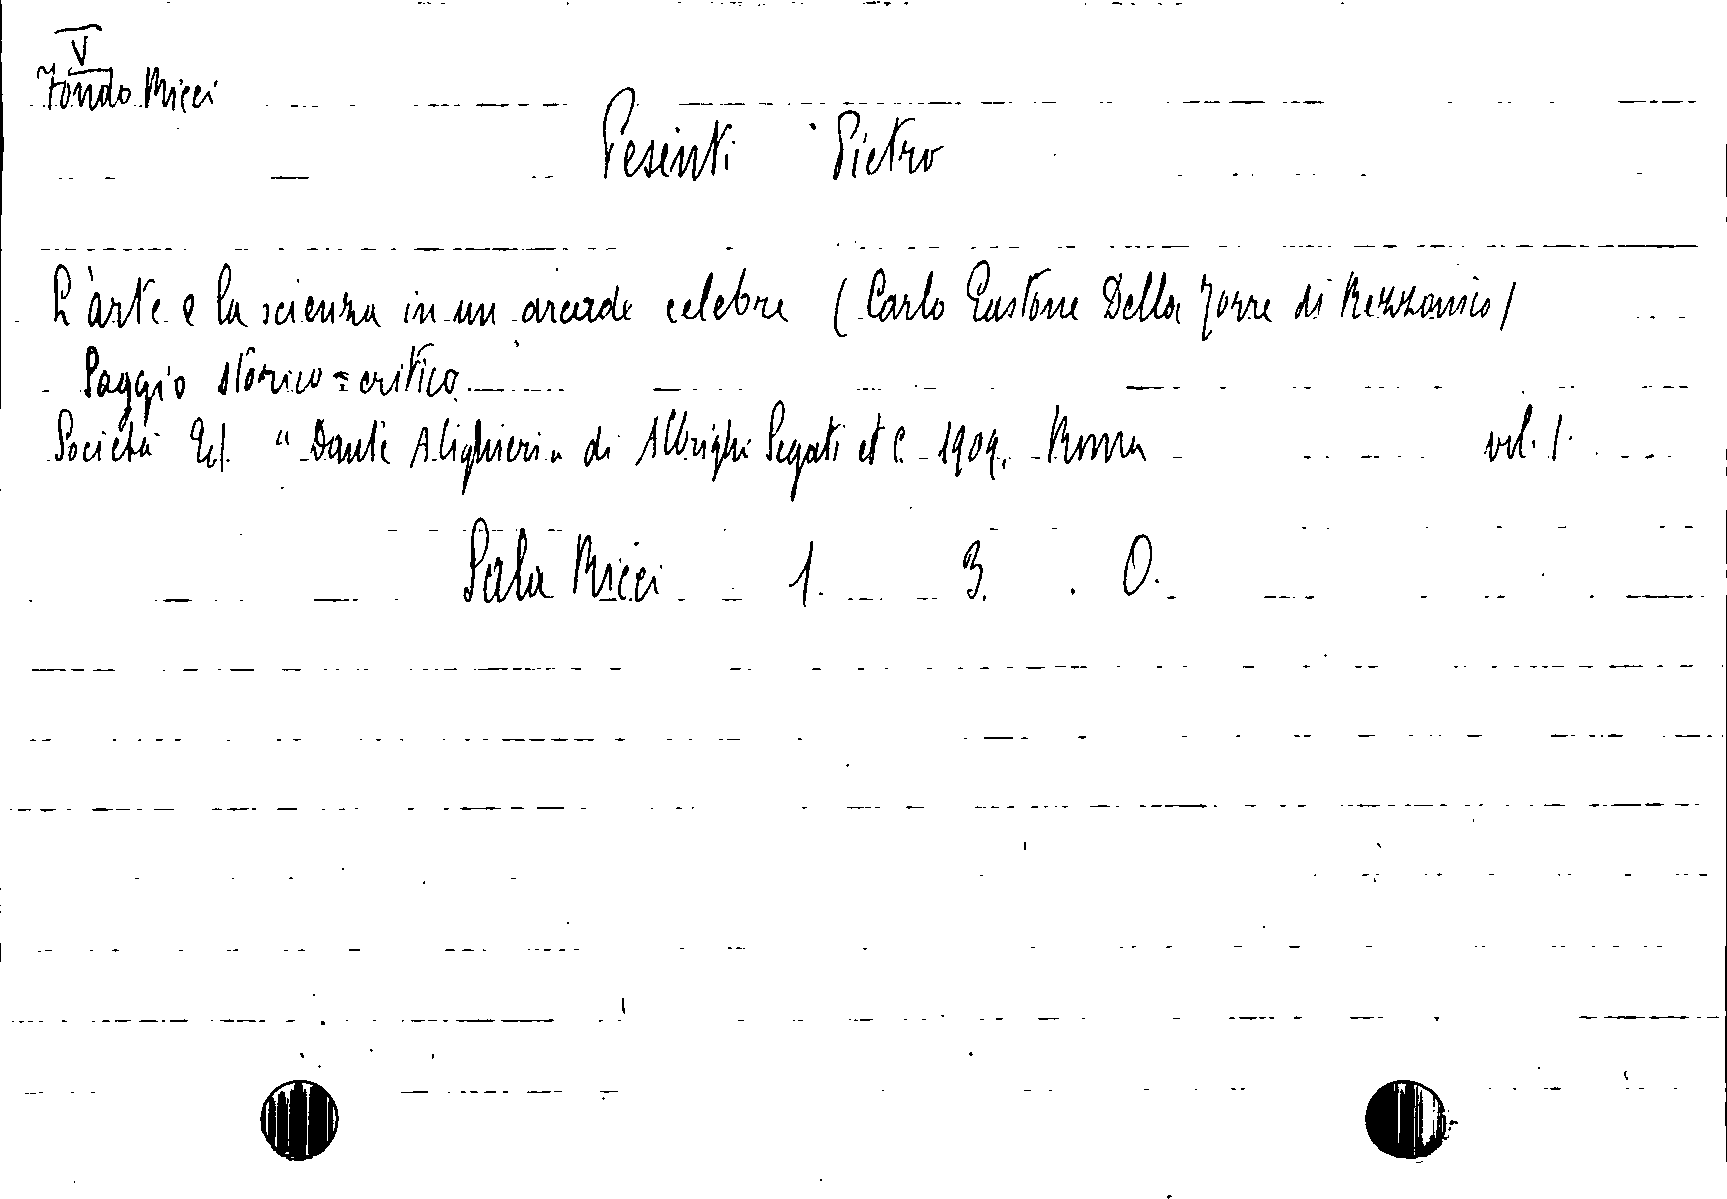 V
Fondo Ricci
Pesenti Pietro
L'arte e la scienza in un arcade celebre (Carlo Gastone Della Torre di Rezzonico)
Saggio storico=critico
Società Ed. "Dante Alighieri" di Albrighi Segati et C. 1909. Roma vol. 1.
Sala Ricci 1. 3. 0.